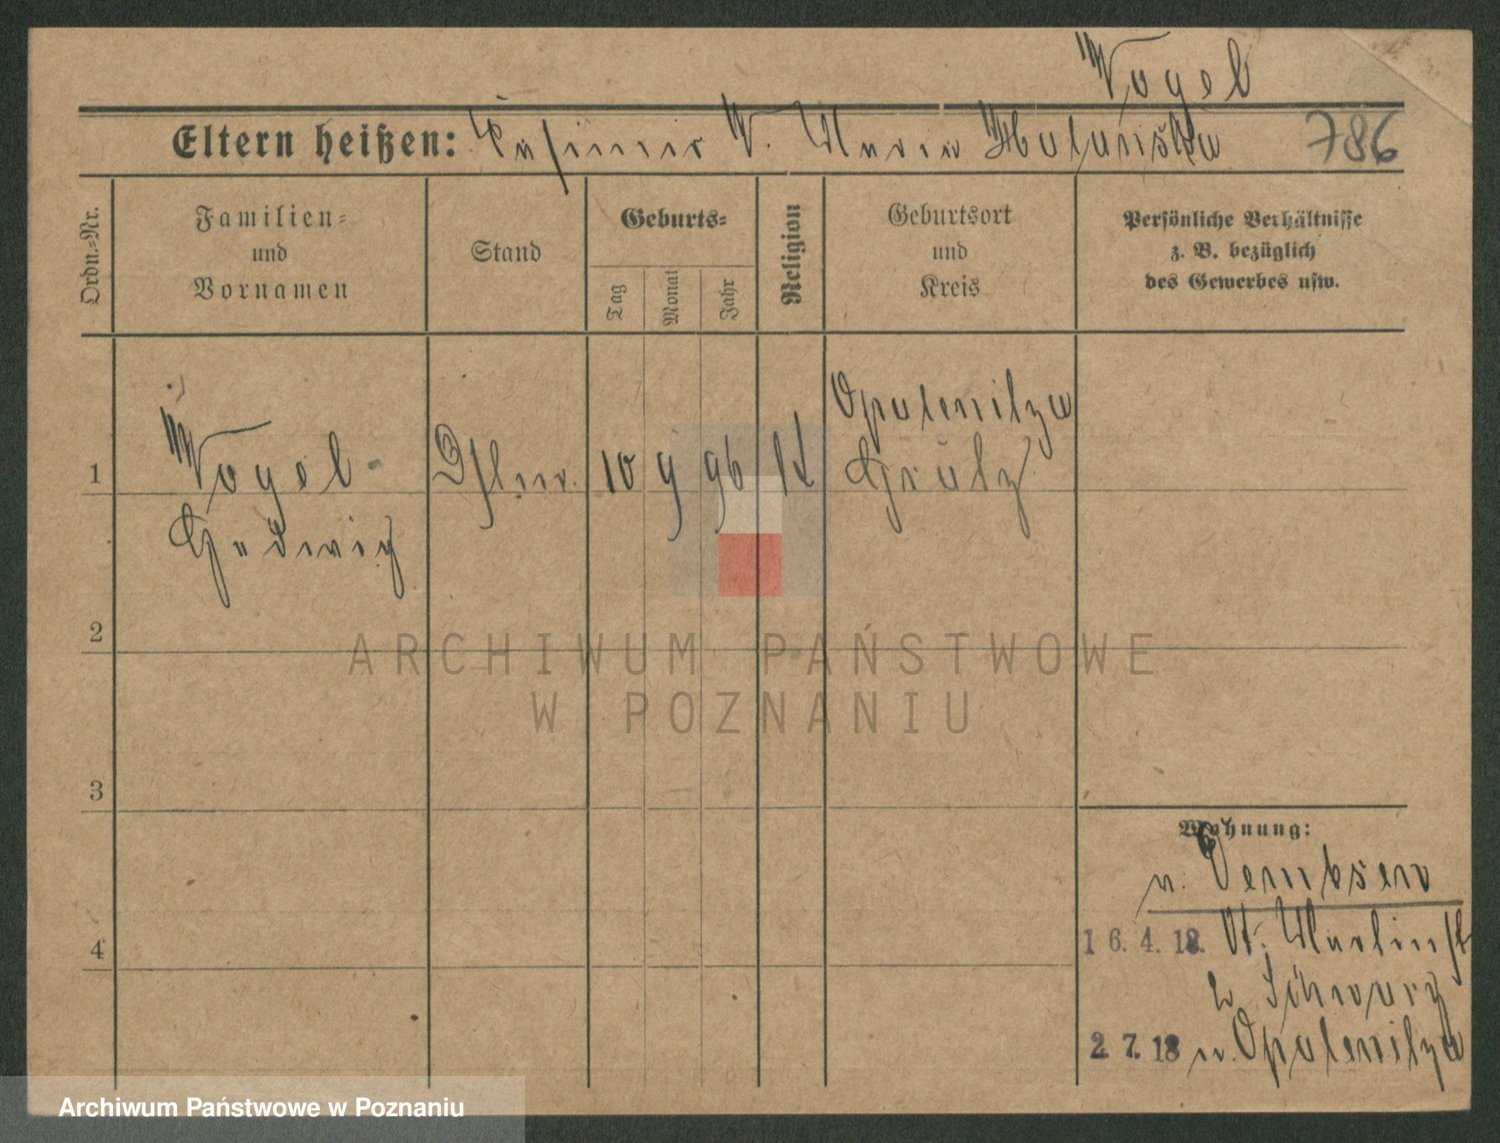 Vogel
Eltern heißen: Casimir V. Maria
786
Ordn.-Nr.
Familien-
und
Vornamen
Stand
Geburts-
Tag
Monat
Jahr
Religion
Geburtsort
und
Kreis
Persönliche Verhältnisse
z. B. bezüglich
des Gewerbes usw.
1 Vogel 10 9 96 k Opalenitza
Hedwig Grätz
2
3
4
Wohnung:
n. Dembsen
16. 4. 18. St. Martinst
b Schwarz
2. 7. 18 n. Opalenitza
ARCHIWUM PAŃSTWOWE
W POZNANIU
Archiwum Państwowe w Poznaniu